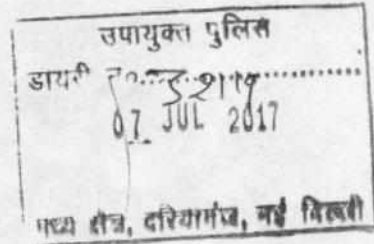 उपायुक्त पुलिस
डायरी
07 JUL 2017
मध्य क्षेत्र, दरियागंज, नई दिल्ली